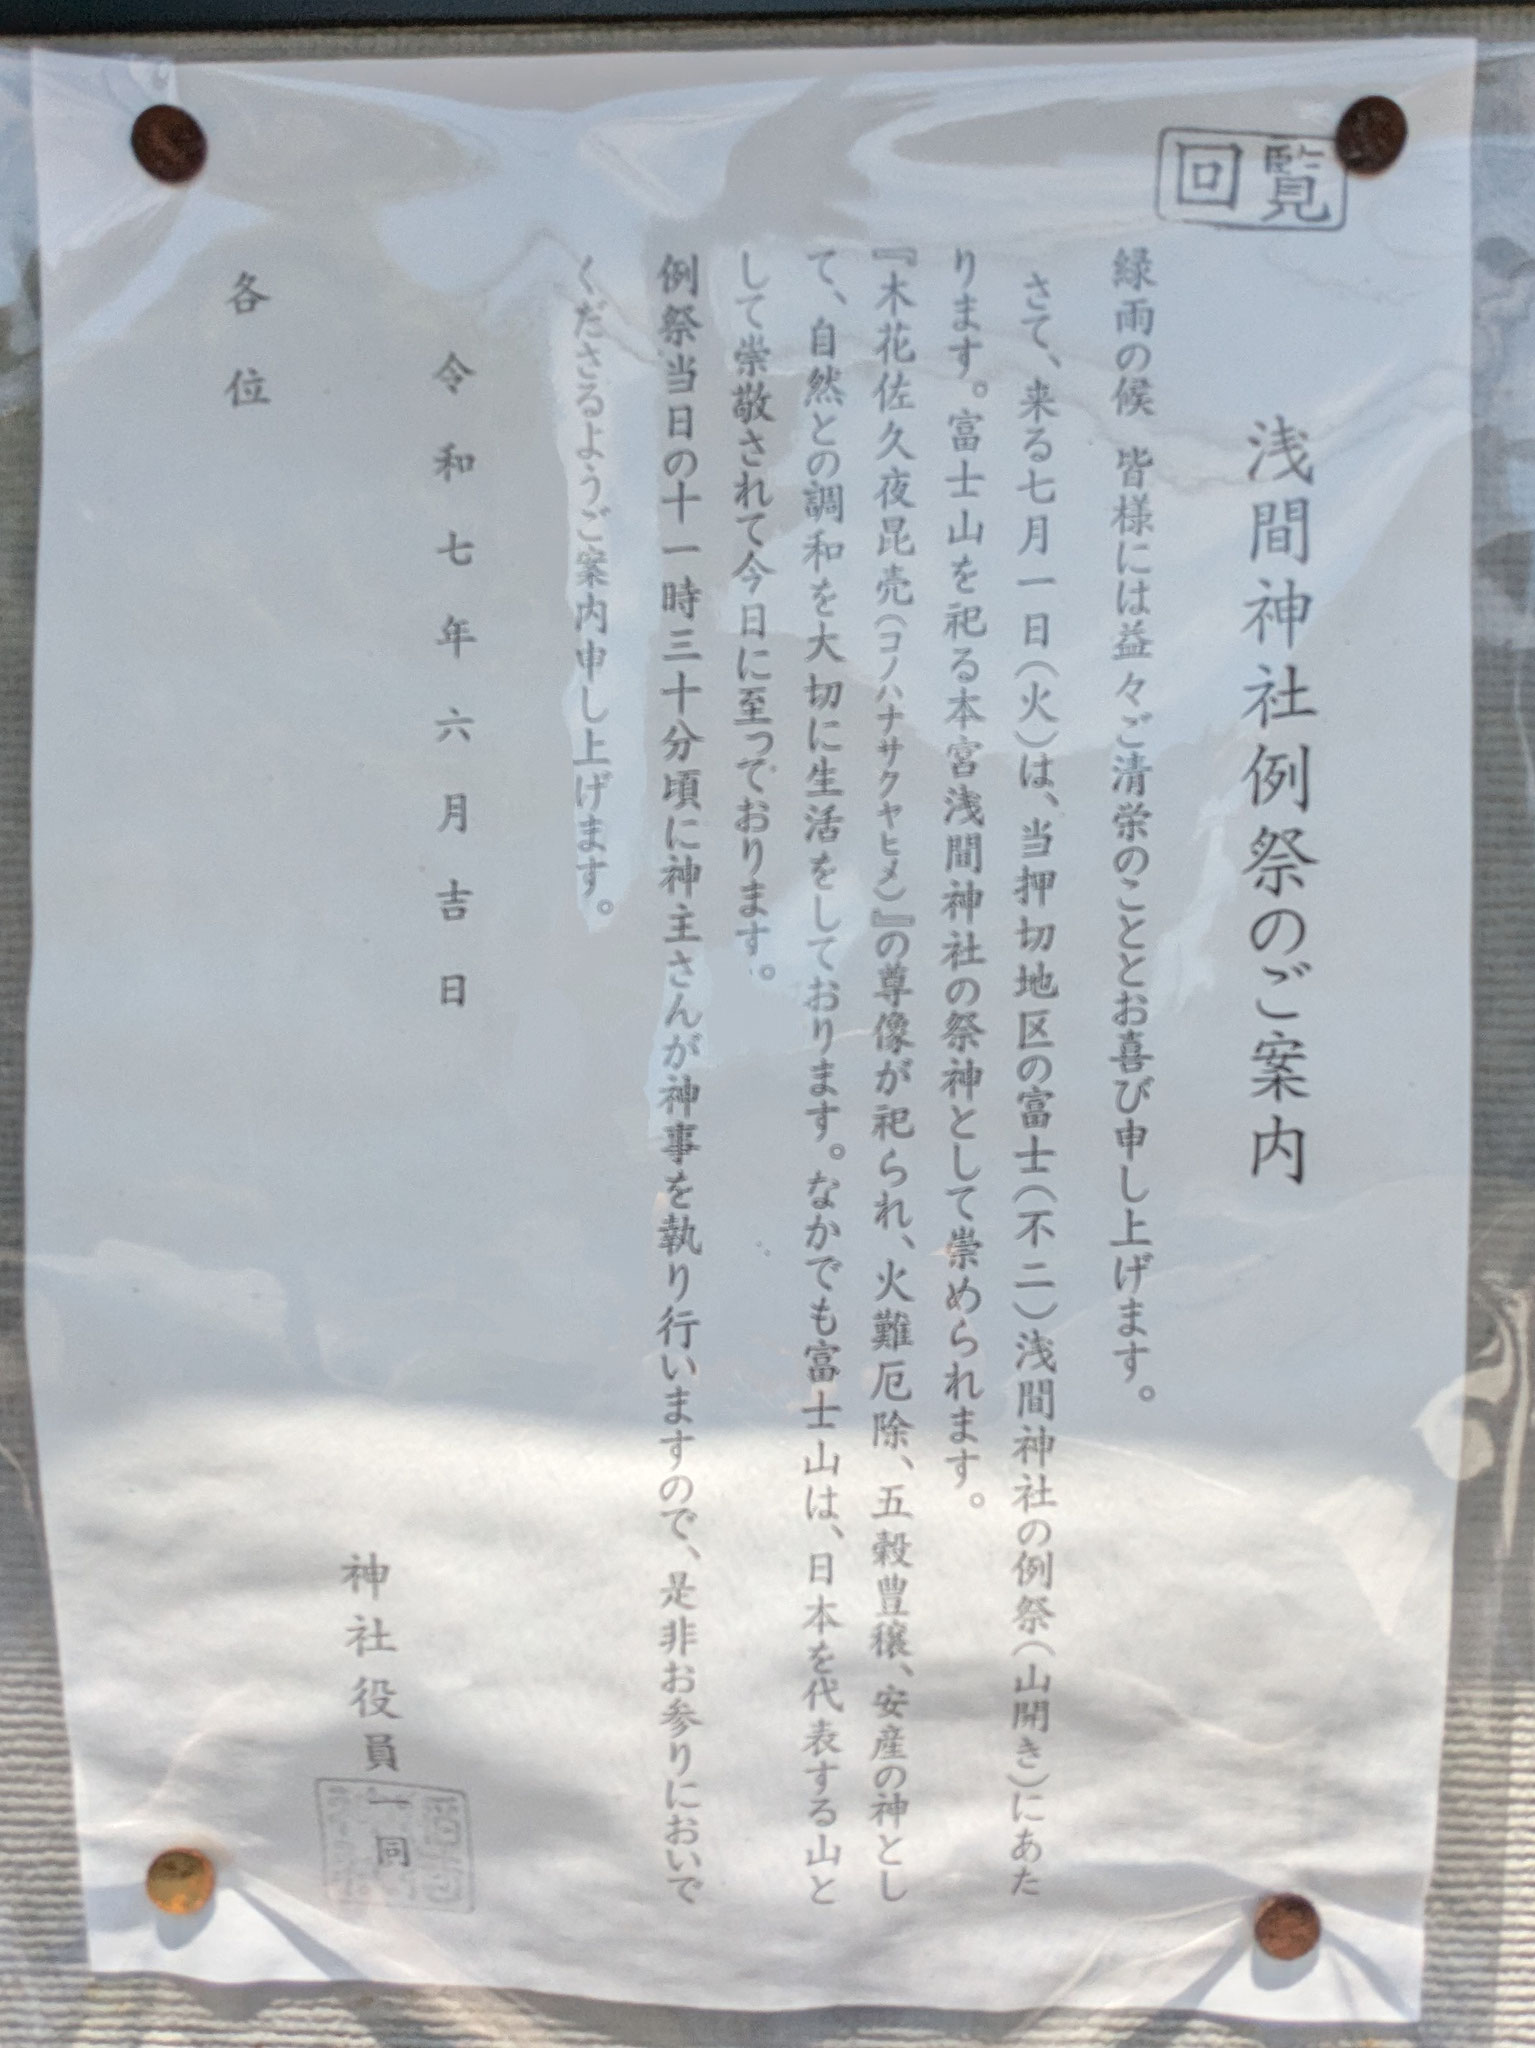 回覧
浅間神社例祭のご案内
緑雨の候 皆様には益々ご清栄のこととお喜び申し上げます。
さて、来る七月一日(火)は、当押切地区の富士(不二)浅間神社の例祭(山開き)にあた
ります。富士山を祀る本宮浅間神社の祭神として崇められます。
『木花佐久夜昆売(コノハナサクヤヒメ)』の尊像が祀られ、火難厄除、五穀豊穣、安産の神とし
て、自然との調和を大切に生活をしております。なかでも富士山は、日本を代表する山と
して崇敬されて今日に至っております。
例祭当日の十一時三十分頃に神主さんが神事を執り行いますので、是非お参りにおいで
くださるようご案内申し上げます。
令和七年六月吉日
神社役員一同
各位